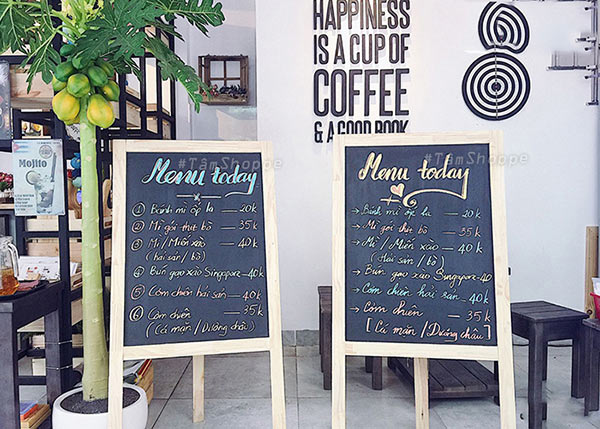 HAPPINESS
IS A CUP OF
COFFEE
& A GOOD BOOK
Mojito
#TâmShoppe
Menu today
① Bánh mì ốp la — 20k
② Mì gói thịt bò — 35k
③ Mì / Miến xào — 40k
(hải sản / bò)
④ Bún gạo xào Singapore - 40k
⑤ Cơm chiên hải sản — 40k
⑥ Cơm chiên — 35k
(Cá mặn / Dương châu)
#TâmShoppe
Menu today
→ Bánh mì ốp la — 20k
→ Mì gói thịt bò — 35k
→ Mì / Miến xào — 40k
(Hải sản / bò)
→ Bún gạo xào Singapore - 40
→ Cơm chiên hải sản - 40k
→ Cơm chiên — 35k
[Cá mặn / Dương châu]